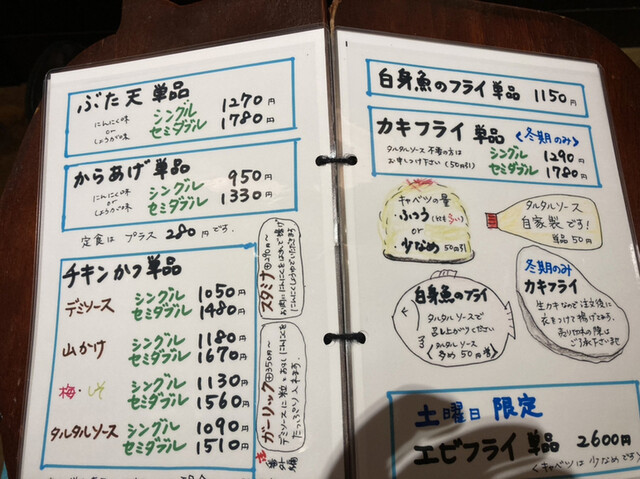 ぶた天 単品
にんにく味
or
しょうが味
シングル 1270円
セミダブル 1780円
からあげ 単品
にんにく味
or
しょうが味
シングル 950円
セミダブル 1330円
定食は プラス 280円です。
チキンかつ単品
デミソース シングル 1050円
セミダブル 1480円
山かけ シングル 1180円
セミダブル 1670円
梅・しそ シングル 1130円
セミダブル 1560円
タルタルソース シングル 1090円
セミダブル 1510円
スタミナ⊕290円〜
お肉ににんにくをはさんで揚げ
にんにくしょうゆでいただきます
ガーリック⊕350円〜
デミソースに粒とおろしにんにくを
たっぷり入れます。
白身魚のフライ 単品 1150円
カキフライ 単品 <冬期のみ>
タルタルソース 不要の方は
お申しつけ下さい(50円引)
シングル 1290円
セミダブル 1780円
キャベツの量
ふつう
or
少なめ 50円引
タルタルソース
自家製です!
単品 50円
白身魚のフライ
タルタルソースで
召し上がりください
タルタルソース
多め 50円増
冬期のみ
カキフライ
生カキなので注文後に
衣をつけて揚げてます。
売り切れの際は
ご了承下さいませ
土曜日 限定
エビフライ 単品 2600円
<キャベツは少なめです>